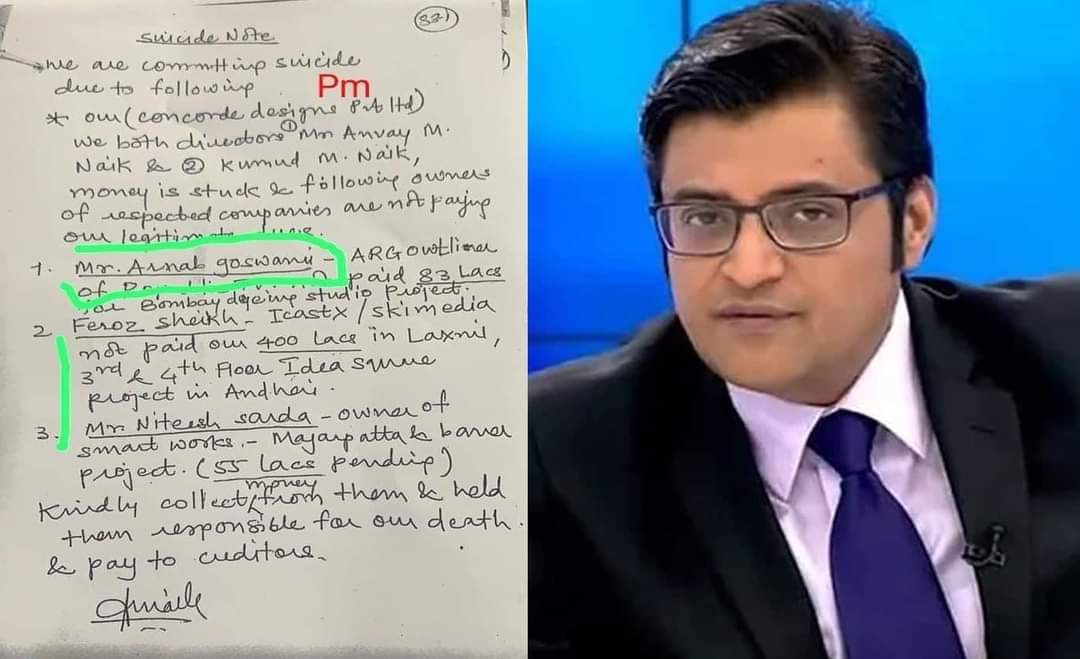 321
Suicide Note
We are committing suicide
due to following
Pm
* our (concorde designs Pvt ltd)
We both directors ① Mr Anvay M.
Naik & ② Kumud M. Naik,
money is stuck & following owners
of respected companies are not paying
our legitimate dues.
1. Mr. Arnab goswami - ARG outlier
of paid 83 Lacs
for Bombay dyeing studio project.
2 Feroz sheikh - Icastx / skimedia
not paid our 400 lacs in Laxmi,
3rd & 4th Floor Idea square
project in Andhai.
3. Mr. Niteesh sarda - owner of
smart works. - Magarpatta & baner
project. (55 lacs pending)
Kindly collect money from them & held
them responsible for our death.
& pay to creditors.